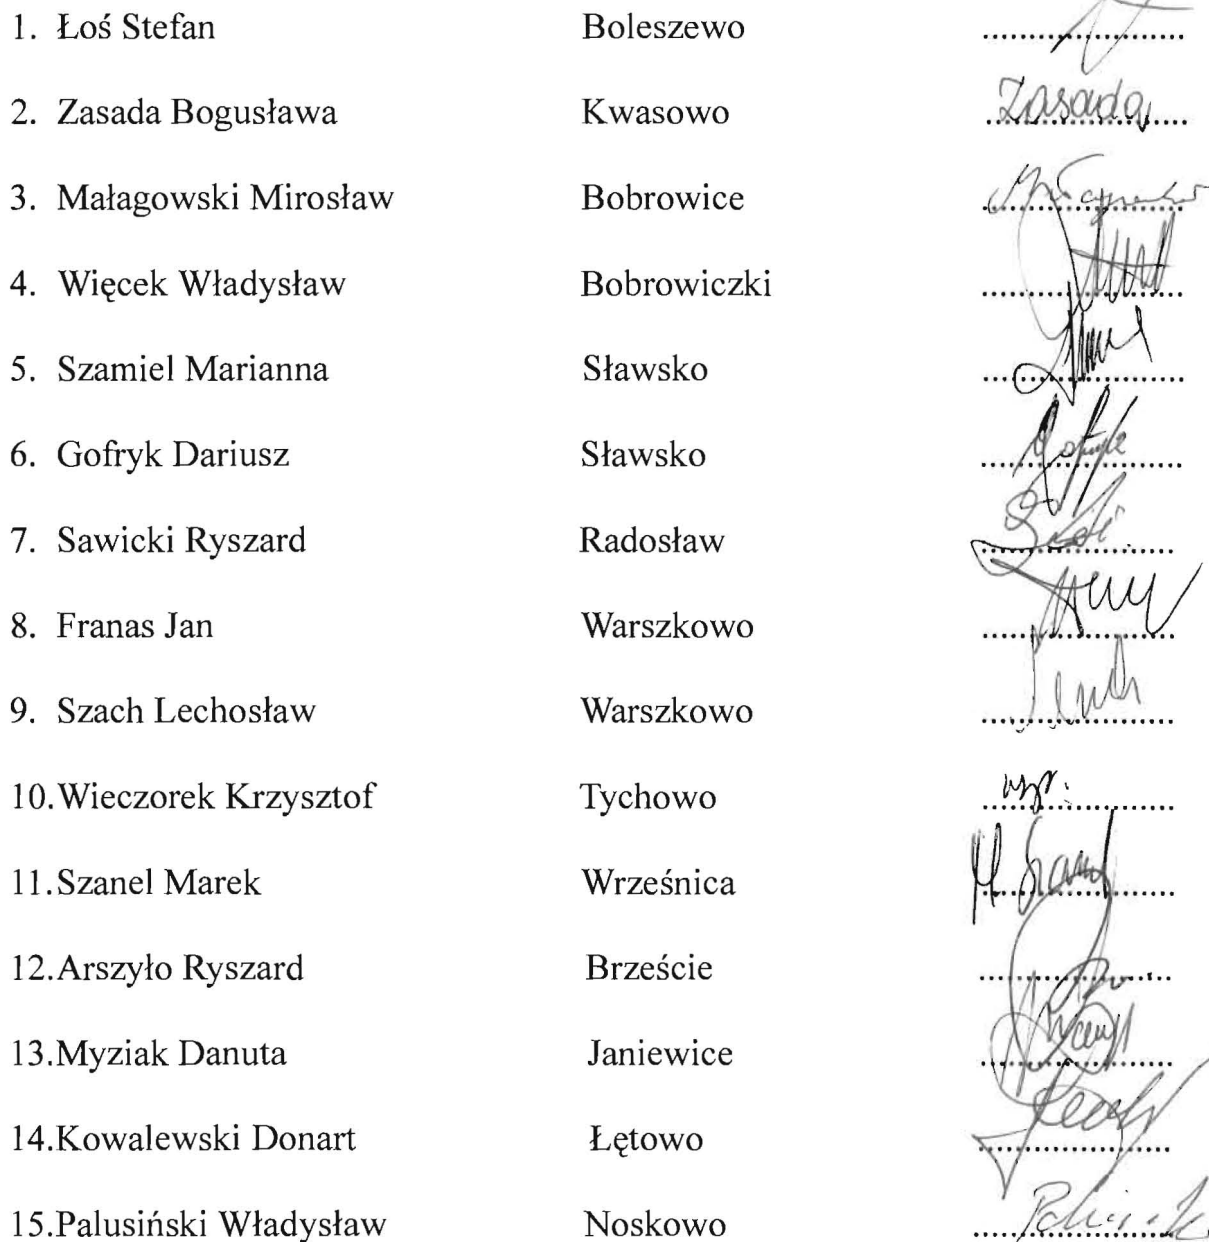 1. Łoś Stefan Boleszewo ....................
2. Zasada Bogusława Kwasowo Zasada
3. Małagowski Mirosław Bobrowice ....................
4. Więcek Władysław Bobrowiczki ....................
5. Szamiel Marianna Sławsko ....................
6. Gofryk Dariusz Sławsko ....................
7. Sawicki Ryszard Radosław ....................
8. Franas Jan Warszkowo ....................
9. Szach Lechosław Warszkowo ....................
10. Wieczorek Krzysztof Tychowo ....................
11. Szanel Marek Wrześnica ....................
12. Arszyło Ryszard Brzeście ....................
13. Myziak Danuta Janiewice ....................
14. Kowalewski Donart Łętowo ....................
15. Palusiński Władysław Noskowo ....................